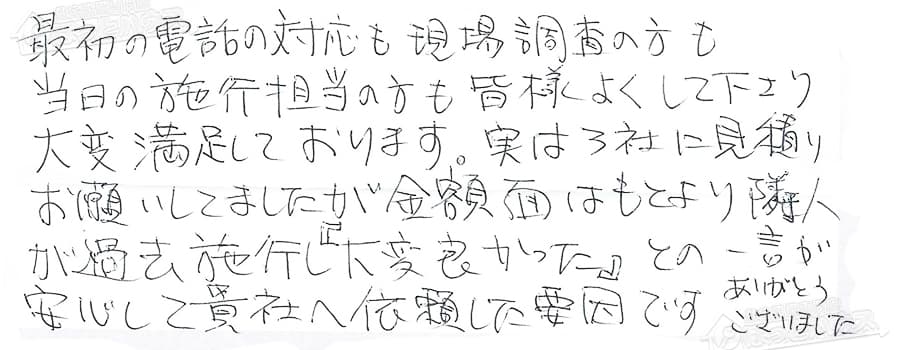 最初の電話の対応も現場調査の方も
当日の施行担当の方も皆様よくして下さり
大変満足しております。実は3社に見積り
お願いしてましたが金額面はもとより隣人
が過去施行し『大変良かった』との一言が
安心して貴社へ依頼した要因です
ありがとう
ございました